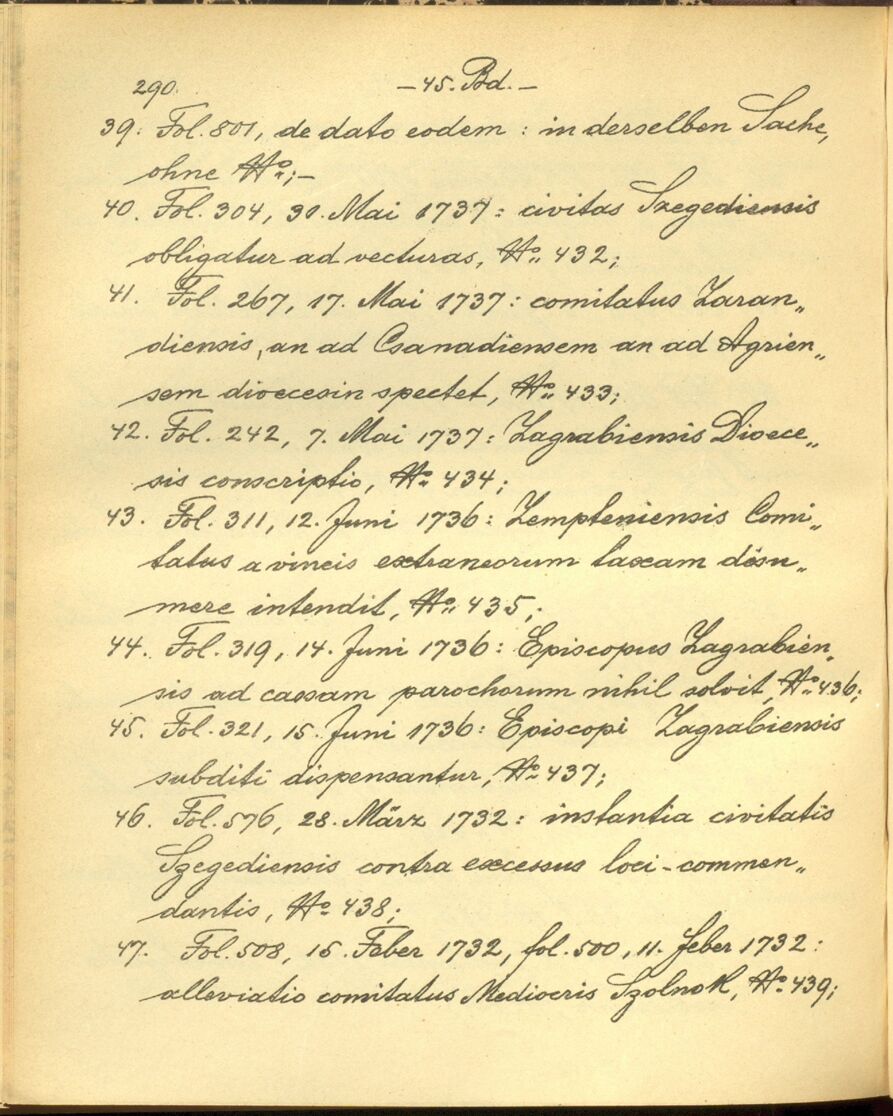 290. —45. Bd.—
39. Fol. 801, de dato eodem : in derselben Sache,
ohne No;—
40. Fol. 304, 30. Mai 1737 : civitas Szegediensis
obligatur ad vecturas, No. 432;
41. Fol. 267, 17. Mai 1737 : comitatus Zaran„
diensis, an ad Csanadiensem an ad Agrien„
sem dioecesin spectet, No. 433;
42. Fol. 242, 7. Mai 1737 : Zagrabiensis Dioece„
sis conscriptio, No. 434;
43. Fol. 311, 12. Juni 1736 : Zempleniensis Comi„
tatus a vineis extraneorum taxam desu„
mere intendit, No. 435;
44. Fol. 319, 14. Juni 1736 : Episcopus Zagrabien„
sis ad cassam parochorum nihil solvit, No. 436;
45. Fol. 321, 15. Juni 1736 : Episcopi Zagrabiensis
subditi dispensantur, No. 437;
46. Fol. 576, 28. März 1732 : instantia civitatis
Szegediensis contra excessus loci-commen„
dantis, No. 438;
47. Fol. 508, 15. Feber 1732, fol. 500, 11. feber 1732 :
alleviatio comitatus Mediocris Szolnok, No. 439;